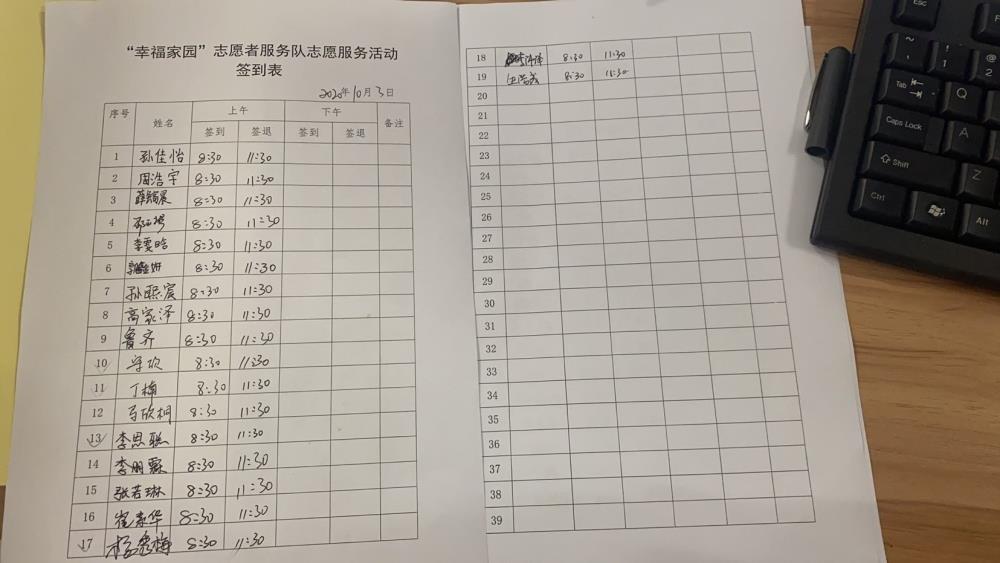 “幸福家园”志愿者服务队志愿服务活动
签到表
2020年10月3日
序号 姓名 上午 下午 备注
签到 签退 签到 签退
1 孙佳怡 8:30 11:30
2 周浩宇 8:30 11:30
3 8:30 11:30
4 8:30 11:30
5 李雯晗 8:30 11:30
6 8:30 11:30
7 孙熙宸 8:30 11:30
8 高家泽 8:30 11:30
9 鲁齐 8:30 11:30
10 8:30 11:30
11 丁楠 8:30 11:30
12 马欣桐 8:30 11:30
13 李思聪 8:30 11:30
14 李朋霖 8:30 11:30
15 张若琳 8:30 11:30
16 崔素华 8:30 11:30
17 8:30 11:30
18 8:30 11:30
19 8:30 11:30
20
21
22
23
24
25
26
27
28
29
30
31
32
33
34
35
36
37
38
39
Esc
~ ! @
1 2
Tab Q
Caps Lock A
Shift Z
Ctrl Alt